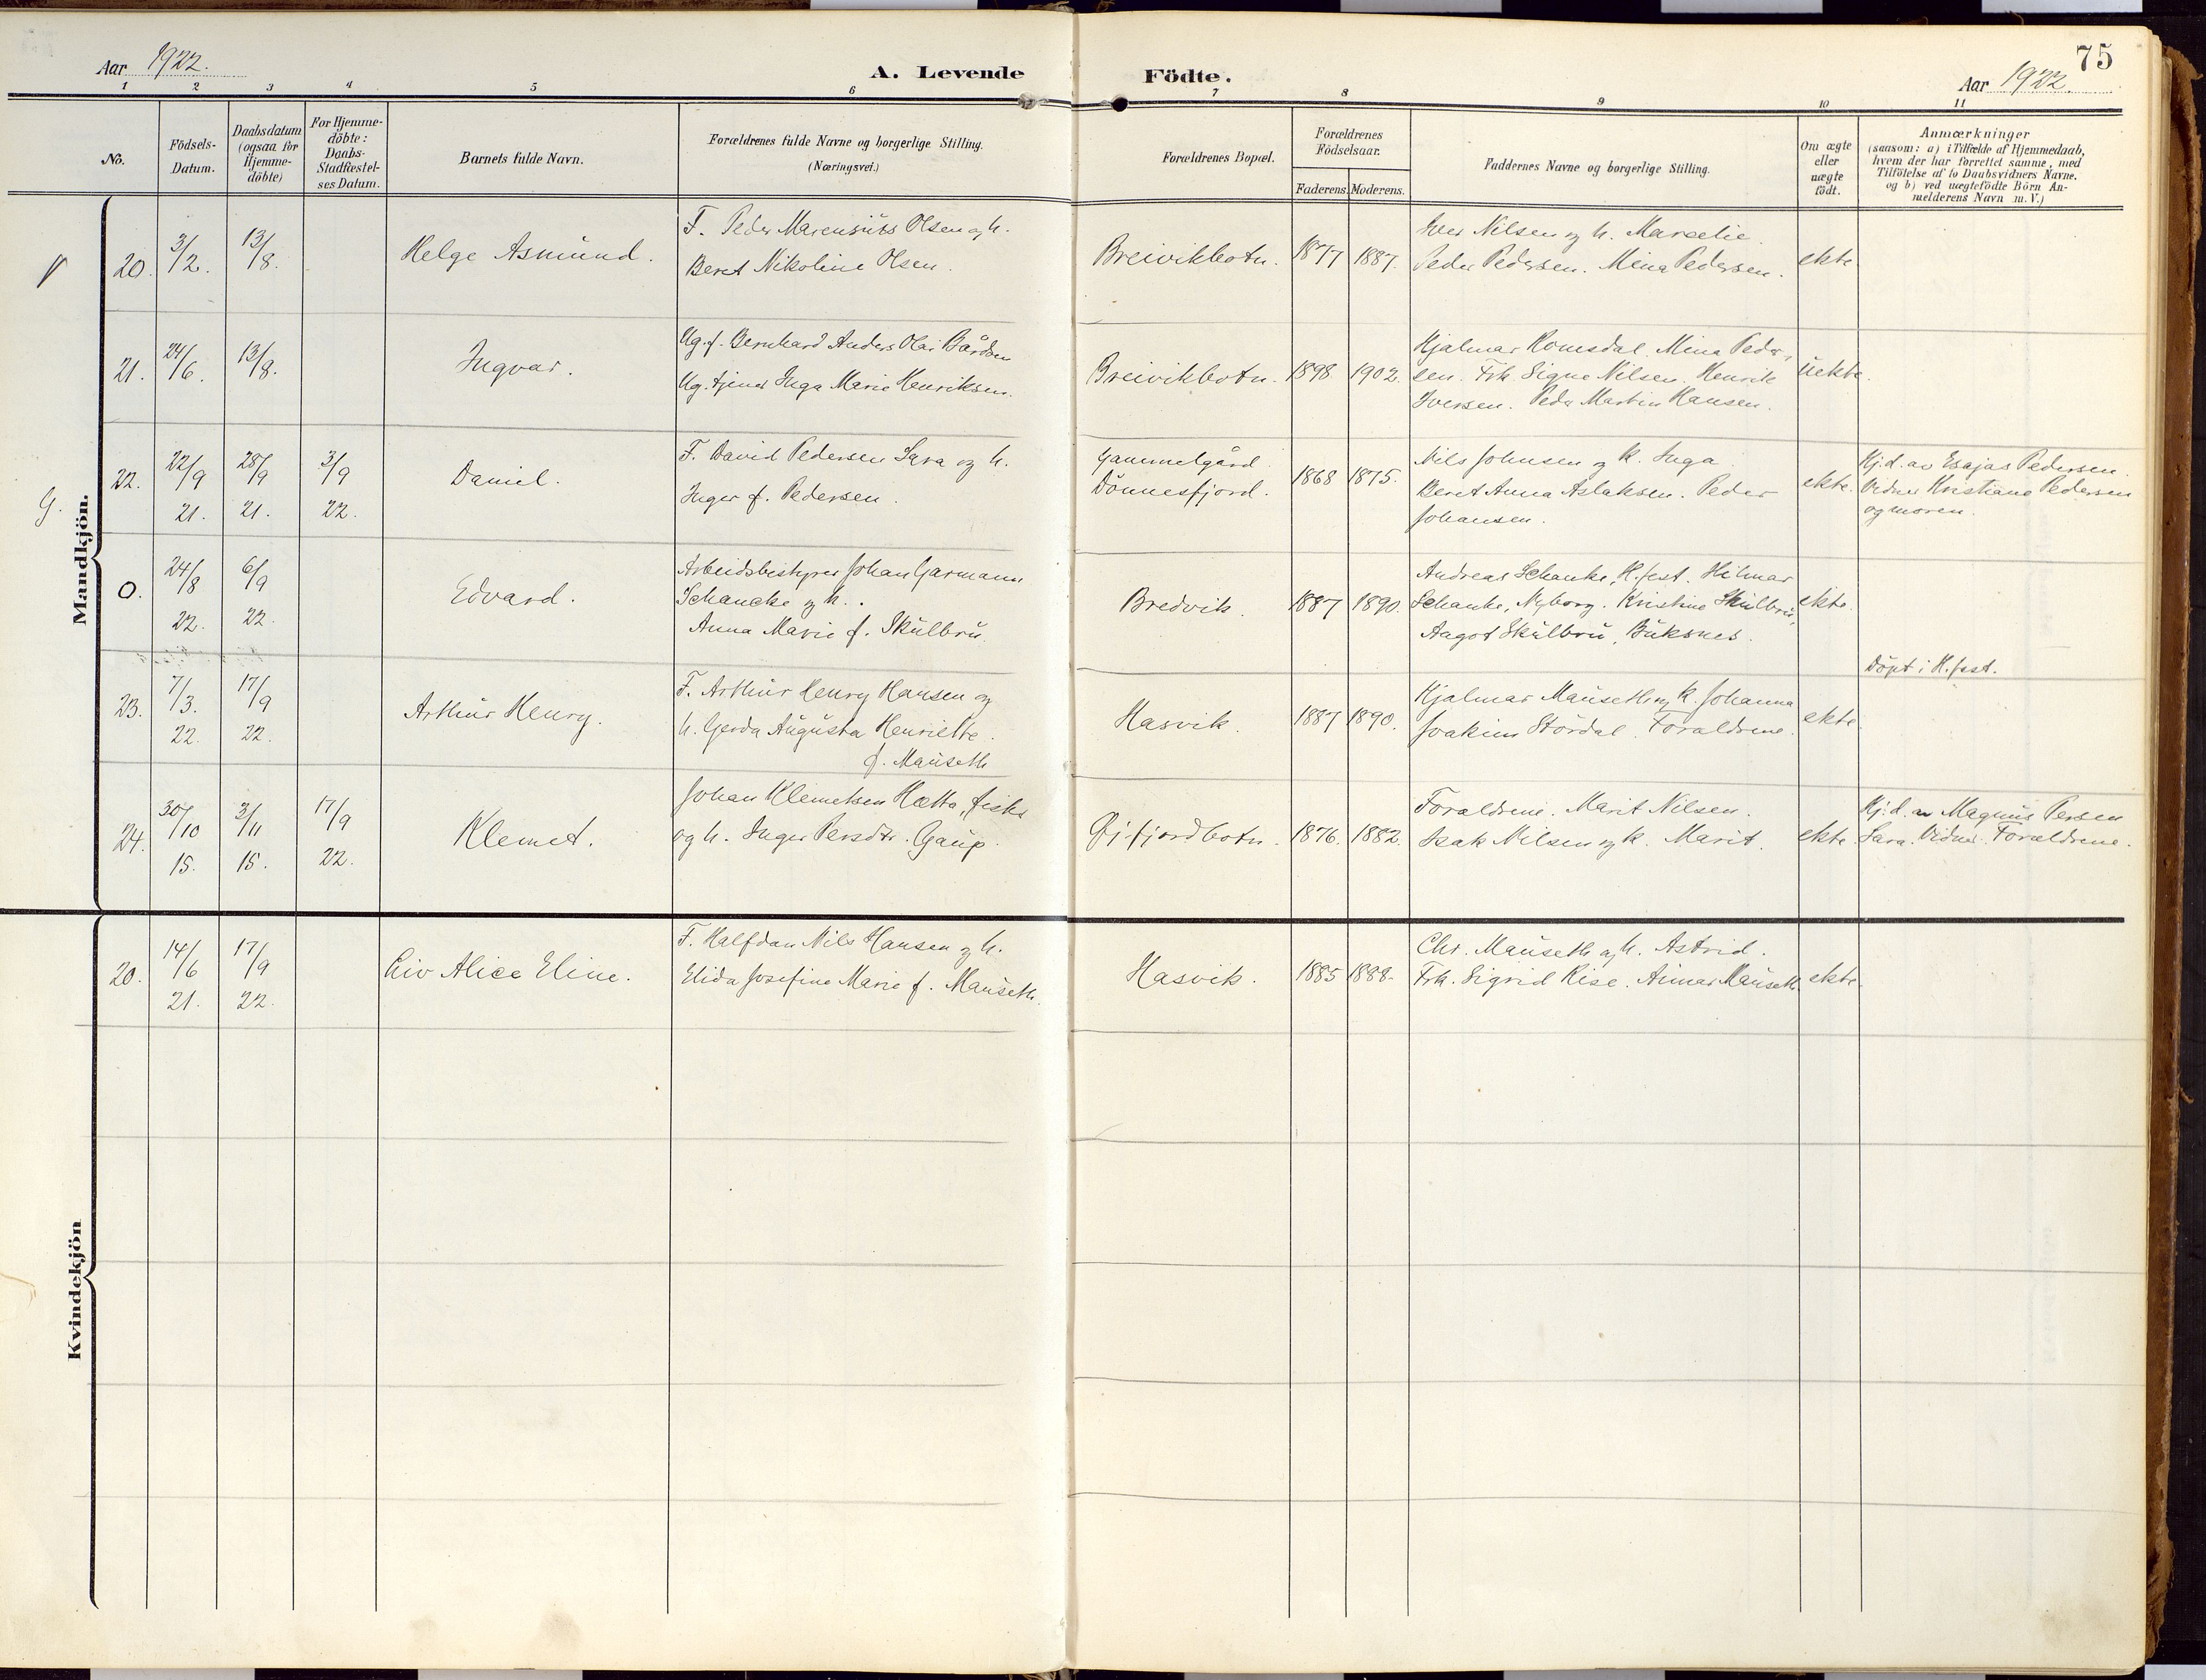 75
Aar 1922. A. Levende Födte. Aar 1922.
1 2 3 4 5 6 7 8 9 10 11
No.
Födsels-
Datum.
Daabsdatum
(ogsaa for
Hjemme-
döbte)
For Hjemme-
döbte:
Daabs-
Stadfæstel-
ses Datum.
Barnets fulde Navn.
Forældrenes fulde Navne og borgerlige Stilling.
(Næringsvei.)
Forældrenes Bopæl.
Forældrenes
Födselsaar.
Faderens. Moderens.
Faddernes Navne og borgerlige Stilling.
Om ægte
eller
uægte
födt.
Anmærkninger
(saasom: a) i Tilfælde af Hjemmedaab,
hvem der har forrettet samme, med
Tilföielse af to Daabsvidners Navne,
og b) ved uægtefödte Börn An-
melderens Navn m. V.)
Mandkjön.
20. 3/2. 13/8. Helge Asmund.
F. Peder Olsen og h.
Beret Nikoline Olsen.
Breivikbotn. 1877 1887.
Iver Nilsen og h. Marselie.
Peder Pedersen. Mina Pedersen.
ekte
21. 24/6. 13/8. Ingvar.
Ug. f. Bernhard Anders Olai Bårdsen
Ug. tjener Inga Marie Henriksen.
Breivikbotn. 1898 1902.
Hjalmar Romsdal. Mina Peder-
sen. Frk. Signe Nilsen. Henrik
Iversen. Peder Martin Hansen.
uekte.
G.
22. 22/9 21. 28/9 21. 3/9 22. Daniel.
F. David Pedersen Sara og h.
Inger f. Pedersen.
Gammelgård
Dönnesfjord.
1868 1875.
Nils Johnsen og k. Inga
Beret Anna Aslaksen. Peder
Johansen.
ekte.
Hj.d. av Esajas Pedersen.
Vidner Kristiane Pedersen
og moren.
0. 24/8 22. 6/9 22. Edvard.
Arbeidsbestyrer Johan Garmann
Schancke og h.
Anna Marie f. Skulbru.
Bredvik. 1887 1890.
Andreas Schanke, H.fest. Hilmar
Schanke, Nyborg. Kristine Skulbru,
Aagot Skulbru, Buksnes.
ekte.
Döpt i H.fest.
23. 7/3. 22. 17/9 22. Arthur Henry.
F. Arthur Henry Hansen og
h. Gerda Augusta Henriette.
f. Mauseth
Hasvik. 1887 1890.
Hjalmar Mauseth og k. Johanna
Joakim Stördal. Foraldrene.
ekte
24. 30/10 15. 3/11 15. 17/9 22. Klemet.
Johan Klemetsen Hætta, fisker
og h. Inger Persdtr. Gaup.
Øjfjordbotn. 1876. 1882.
Foraldrene. Marit Nilsen.
Isak Nilsen og k. Marit.
ekte
Hj.d. av Magnus Persen
Sara. Vidner Foraldrene.
Kvindekjön
20. 14/6 21. 17/9 22. Liv Alice Eline.
F. Halfdan Nils Hansen og h.
Elida Josefine Marie f. Mauseth.
Hasvik. 1885 1888.
Chr. Mauseth og h. Astrid.
Frk. Sigrid Rise. Einar Mauseth.
ekte.